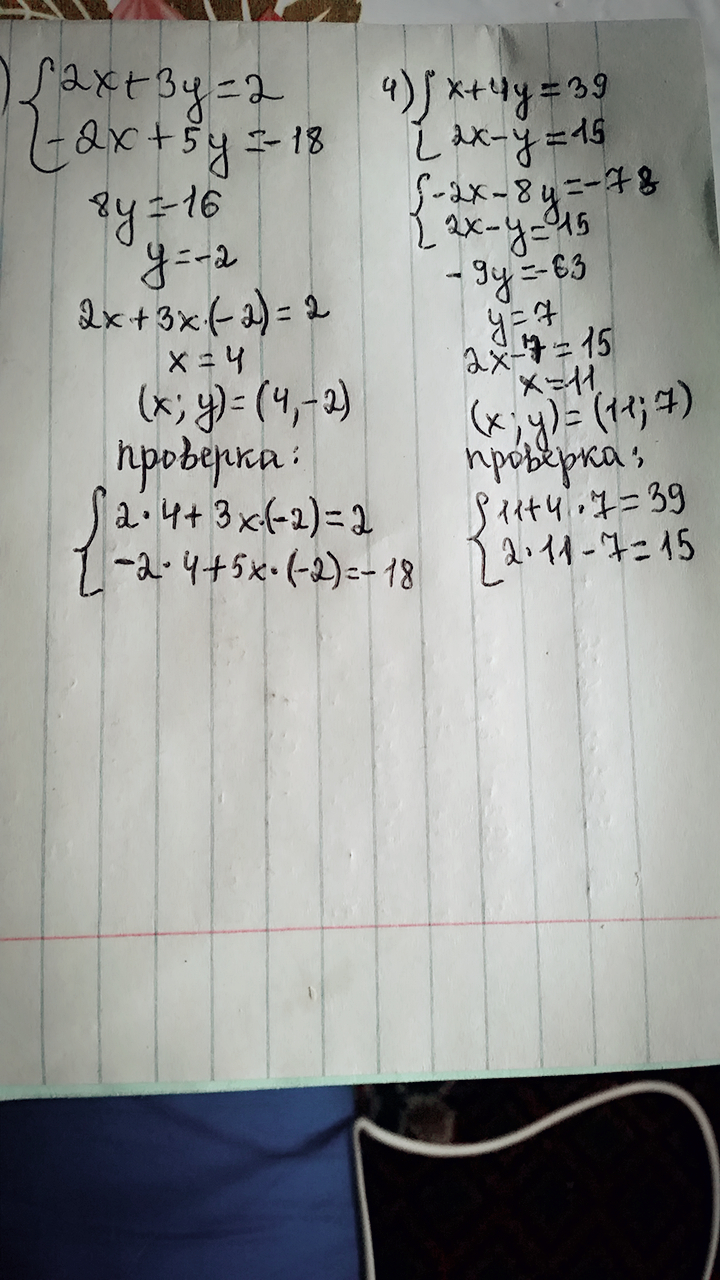 ) { 2x+3y=2
-2x+5y=-18
8y=-16
y=-2
2x+3x·(-2)=2
x=4
(x;y)=(4,-2)
проверка:
{ 2·4+3x·(-2)=2
-2·4+5x·(-2)=-18
4) { x+4y=39
2x-y=15
{ -2x-8y=-78
2x-y=15
-9y=-63
y=7
2x-7=15
x=11
(x;y)=(11;7)
проверка:
{ 11+4·7=39
2·11-7=15